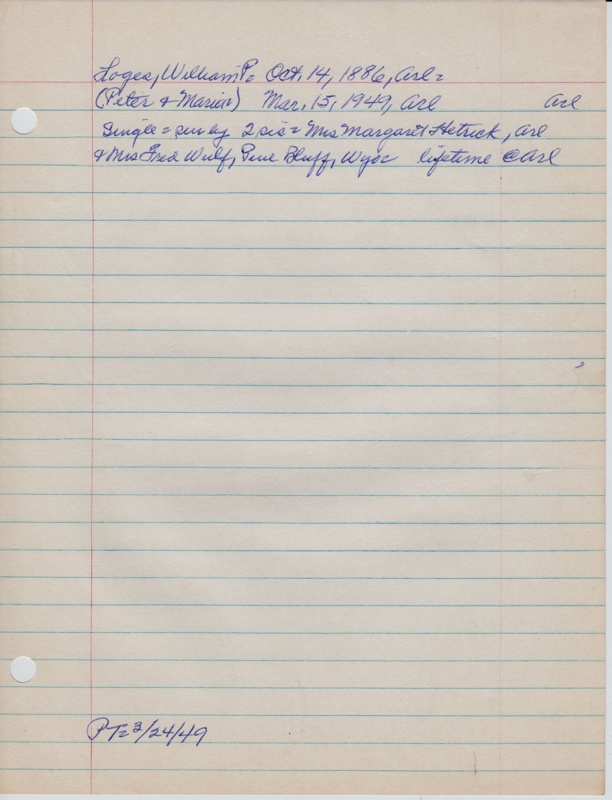 Loges, William P= Oct. 14, 1886, Arl=
(Peter & Maria=) Mar. 15, 1949, Arl Arl
Single = surv by 2 sis = Mrs Margaret Hetrick, Arl
& Mrs Fred Wulf, Pine Bluff, Wyo= lifetime @ Arl
PT= 3/24/49